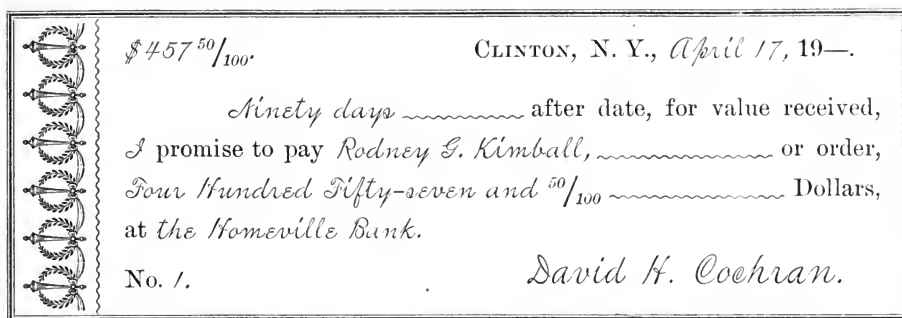 $457 50/100. CLINTON, N. Y., April 17, 19—.
Ninety days after date, for value received,
I promise to pay Rodney G. Kimball, or order,
Four Hundred Fifty-seven and 50/100 Dollars,
at the Homeville Bank.
No. 1. David H. Cochran.